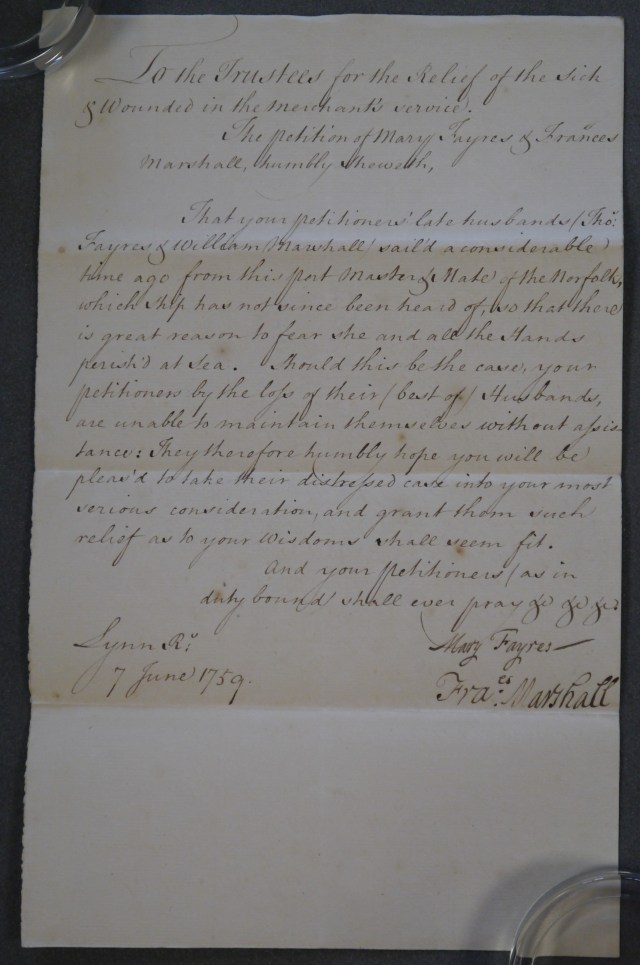 To the Trustees for the Relief of the Sick
& Wounded in the Merchant's service.
The petition of Mary Fayres & Frances
Marshall, humbly sheweth,
That your petitioners' late husbands (Tho:
Fayres & William Marshall) sail'd a considerable
time ago from this port Master & Mate of the Norfolk,
which ship has not since been heard of, so that there
is great reason to fear she and all the Hands
perish'd at sea. Should this be the case, your
petitioners by the loss of their (best of) Husbands,
are unable to maintain themselves without assis-
tance: They therefore humbly hope you will be
pleas'd to take their distressed case into your most
serious consideration, and grant them such
relief as to your Wisdoms shall seem fit.
And your petitioners (as in
duty bound) shall ever pray &c &c &c
Lynn Rs: Mary Fayres
7 June 1759. Fraces: Marshall